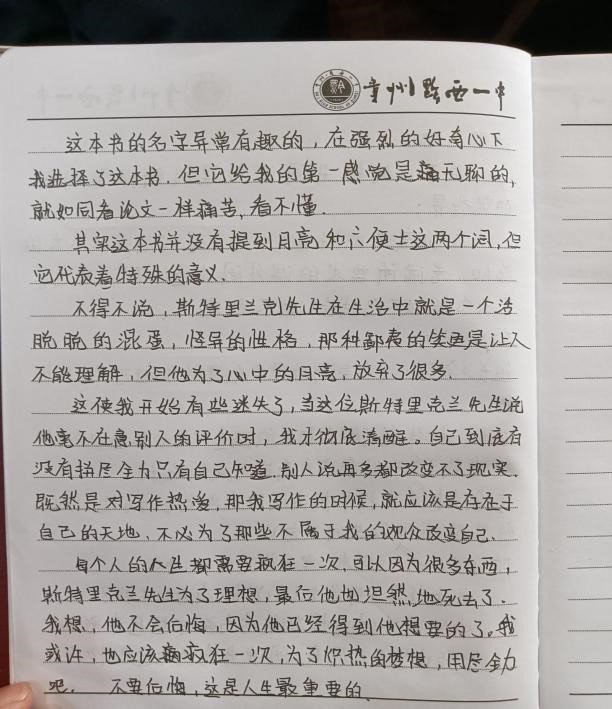 贵州黔西一中
这本书的名字异常有趣的，在强烈的好奇心下
我选择了这本书，但它给我的第一感觉是无聊的，
就如同看论文一样痛苦，看不懂．
其实这本书并没有提到月亮和六便士这两个词，但
它代表着特殊的意义．
不得不说，斯特里兰克先生在生活中就是一个活
脱脱的混蛋，怪异的性格，那种鄙夷的笑更是让人
不能理解，但他为了心中的月亮，放弃了很多．
这使我开始有些迷失了，当这位斯特里克兰先生说
他毫不在意别人的评价时，我才彻底清醒。自己到底有
没有拼尽全力只有自己知道，别人说再多都改变不了现实．
既然是对写作热爱，那我写作的时候，就应该是存在于
自己的天地，不必为了那些不属于我的观众改变自己．
每个人的人生都需要疯狂一次，可以因为很多东西，
斯特里克兰先生为了理想，最后他也坦然地死去了．
我想，他不会后悔，因为他已经得到他想要的了。我
或许，也应该疯狂一次，为了炽热的梦想，用尽全力
吧． 不要后悔，这是人生最重要的．